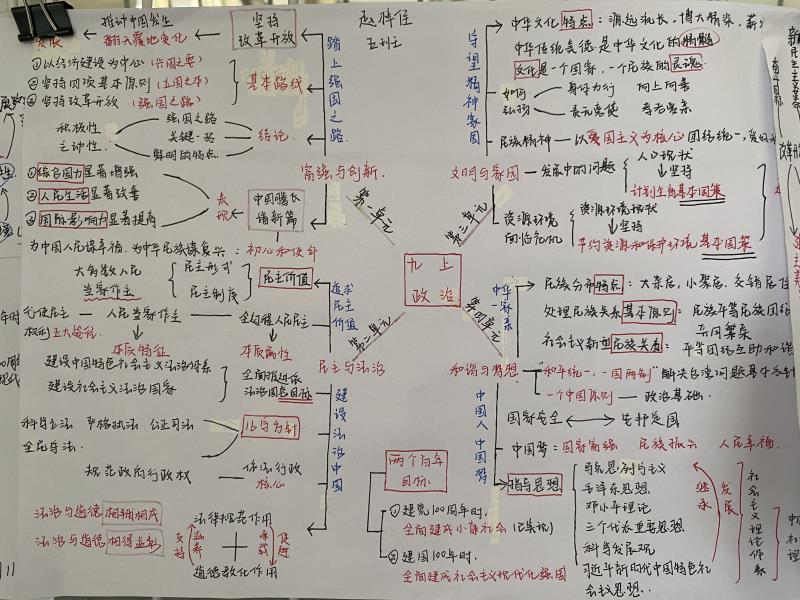 推动中国发生
发展 翻天覆地变化
坚持
改革开放
①以经济建设为中心（兴国之要）
②坚持四项基本原则（立国之本）
③坚持改革开放（强国之路）
基本路线
积极性
主动性：
强国之路
关键一招
鲜明的特点
结论
踏上强国之路
富强与创新
第一单元
①综合国力显著增强
②人民生活显著改善
③国际影响力显著提高
表现
中国腾飞
谱新篇
为中国人民谋幸福，为中华民族谋复兴：初心和使命
大多数人民
当家作主
民主形式
民主制度
民主价值
追求民主价值
行使民主
权利五大途径
人民当家作主
全过程人民民主
本质特征
本质属性
建设中国特色社会主义法治体系
建设社会主义法治国家
全面推进依
法治国总目标
民主与法治
第二单元
科学立法 严格执法 公正司法
全民守法
16字方针
规范政府行政权
依法行政
核心
建设法治中国
法治与道德相辅相成
法治与道德相得益彰
法律规范作用
道德教化作用
支持
滋养
承载
促进
九上
政治
五班
守望精神家园
中华文化特点：源远流长，博大精深，薪
中华传统美德是中华文化的精髓
文化是一个国家、一个民族的灵魂
如何
弘扬
身体力行 向上向善
孝老爱亲
民族精神—以爱国主义为核心 团结统一，爱好和
文明与家园
第三单元
发展中的问题
人口现状
坚持
计划生育基本国策
资源环境
面临危机
资源环境现状
坚持
节约资源和保护环境基本国策
中华一家亲
第四单元
民族分布特点：大杂居，小聚居，交错居住
处理民族关系基本原则：民族平等民族团结
共同繁荣
社会主义新型民族关系：平等团结互助和谐
和谐与梦想
“和平统一，一国两制”解决台湾问题基本方针
一个中国原则—政治基础
国家安全
安邦定国
中国人 中国梦
中国梦：国家富强 民族振兴 人民幸福
指导思想
马克思列宁主义
毛泽东思想
邓小平理论
三个代表重要思想
科学发展观
习近平新时代中国特色社
会主义思想
继承
发展
两个百年
目标
①建党100周年时，
全面建成小康社会（已实现）
②建国100年时，
全面建成社会主义现代化强国